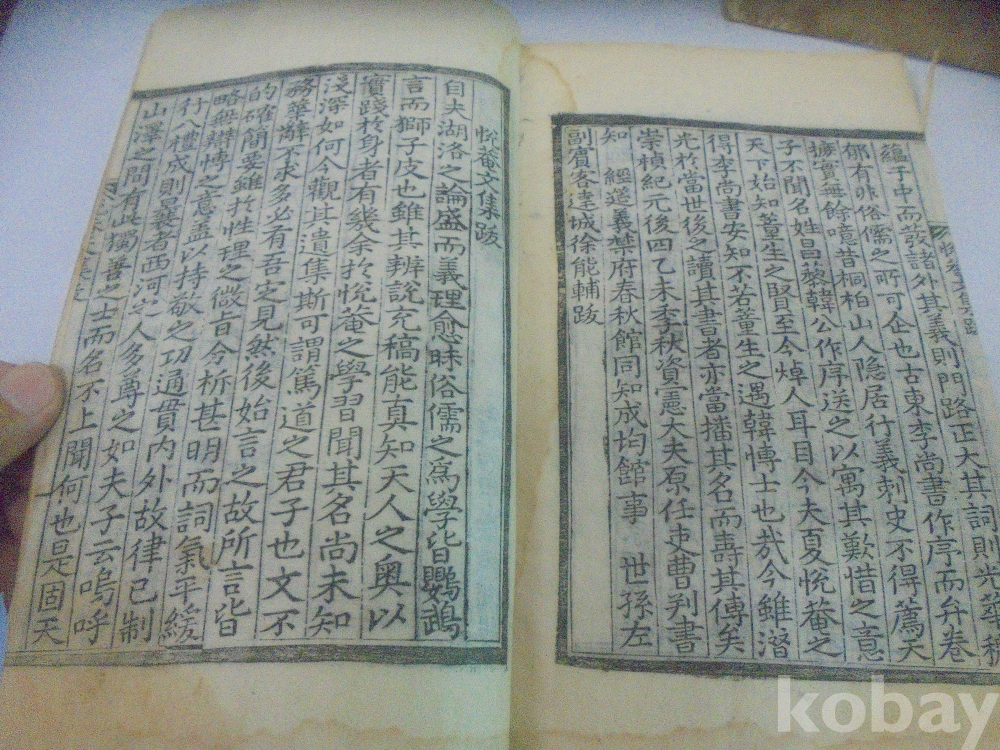 蘊于中而發諸外其義則門路正大其詞則光華
郁有非俗儒之所可企也古東李尚書作序而弁卷
摭實無餘噫昔桐柏山人隐居行義刺史不得薦天
子不聞名姓昌黎韓公作序送之以寓其歎惜之意
天下始知董生之賢至今焯人耳目今夫夏悅菴之
得李尚書安知不若董生之遇韓愽士也㢤今雖潛
光於當世後之讀其書者亦當播其名而壽其傳矣
崇禎紀元後四乙未季秋資憲大夫原任吏曹判書
知 經筵義禁府春秋館同知成均館事 世孫左
副賓客達城徐能輔跋
悅菴文集跋
悅菴文集跋
自夫湖洛之論盛而義理愈昧俗儒之爲學皆鸚鵡
言而獅子皮也雖其辨說充稿能真知天人之奥以
實踐於身者有幾余於悅菴之學習聞其名尚未知
淺深如何今觀其遺集斯可謂篤道之君子也文不
務華辭不求多必有吾定見然後始言之故所言皆
的確簡要雖於性理之微旨令析甚明而詞氣平緩
略無辯愽之意盖以持敬之功通貫内外故律己制
行八禮成則曩者西河之人多尊之如夫子云嗚呼
山澤之間有此獨善之士而名不上聞何也是固天